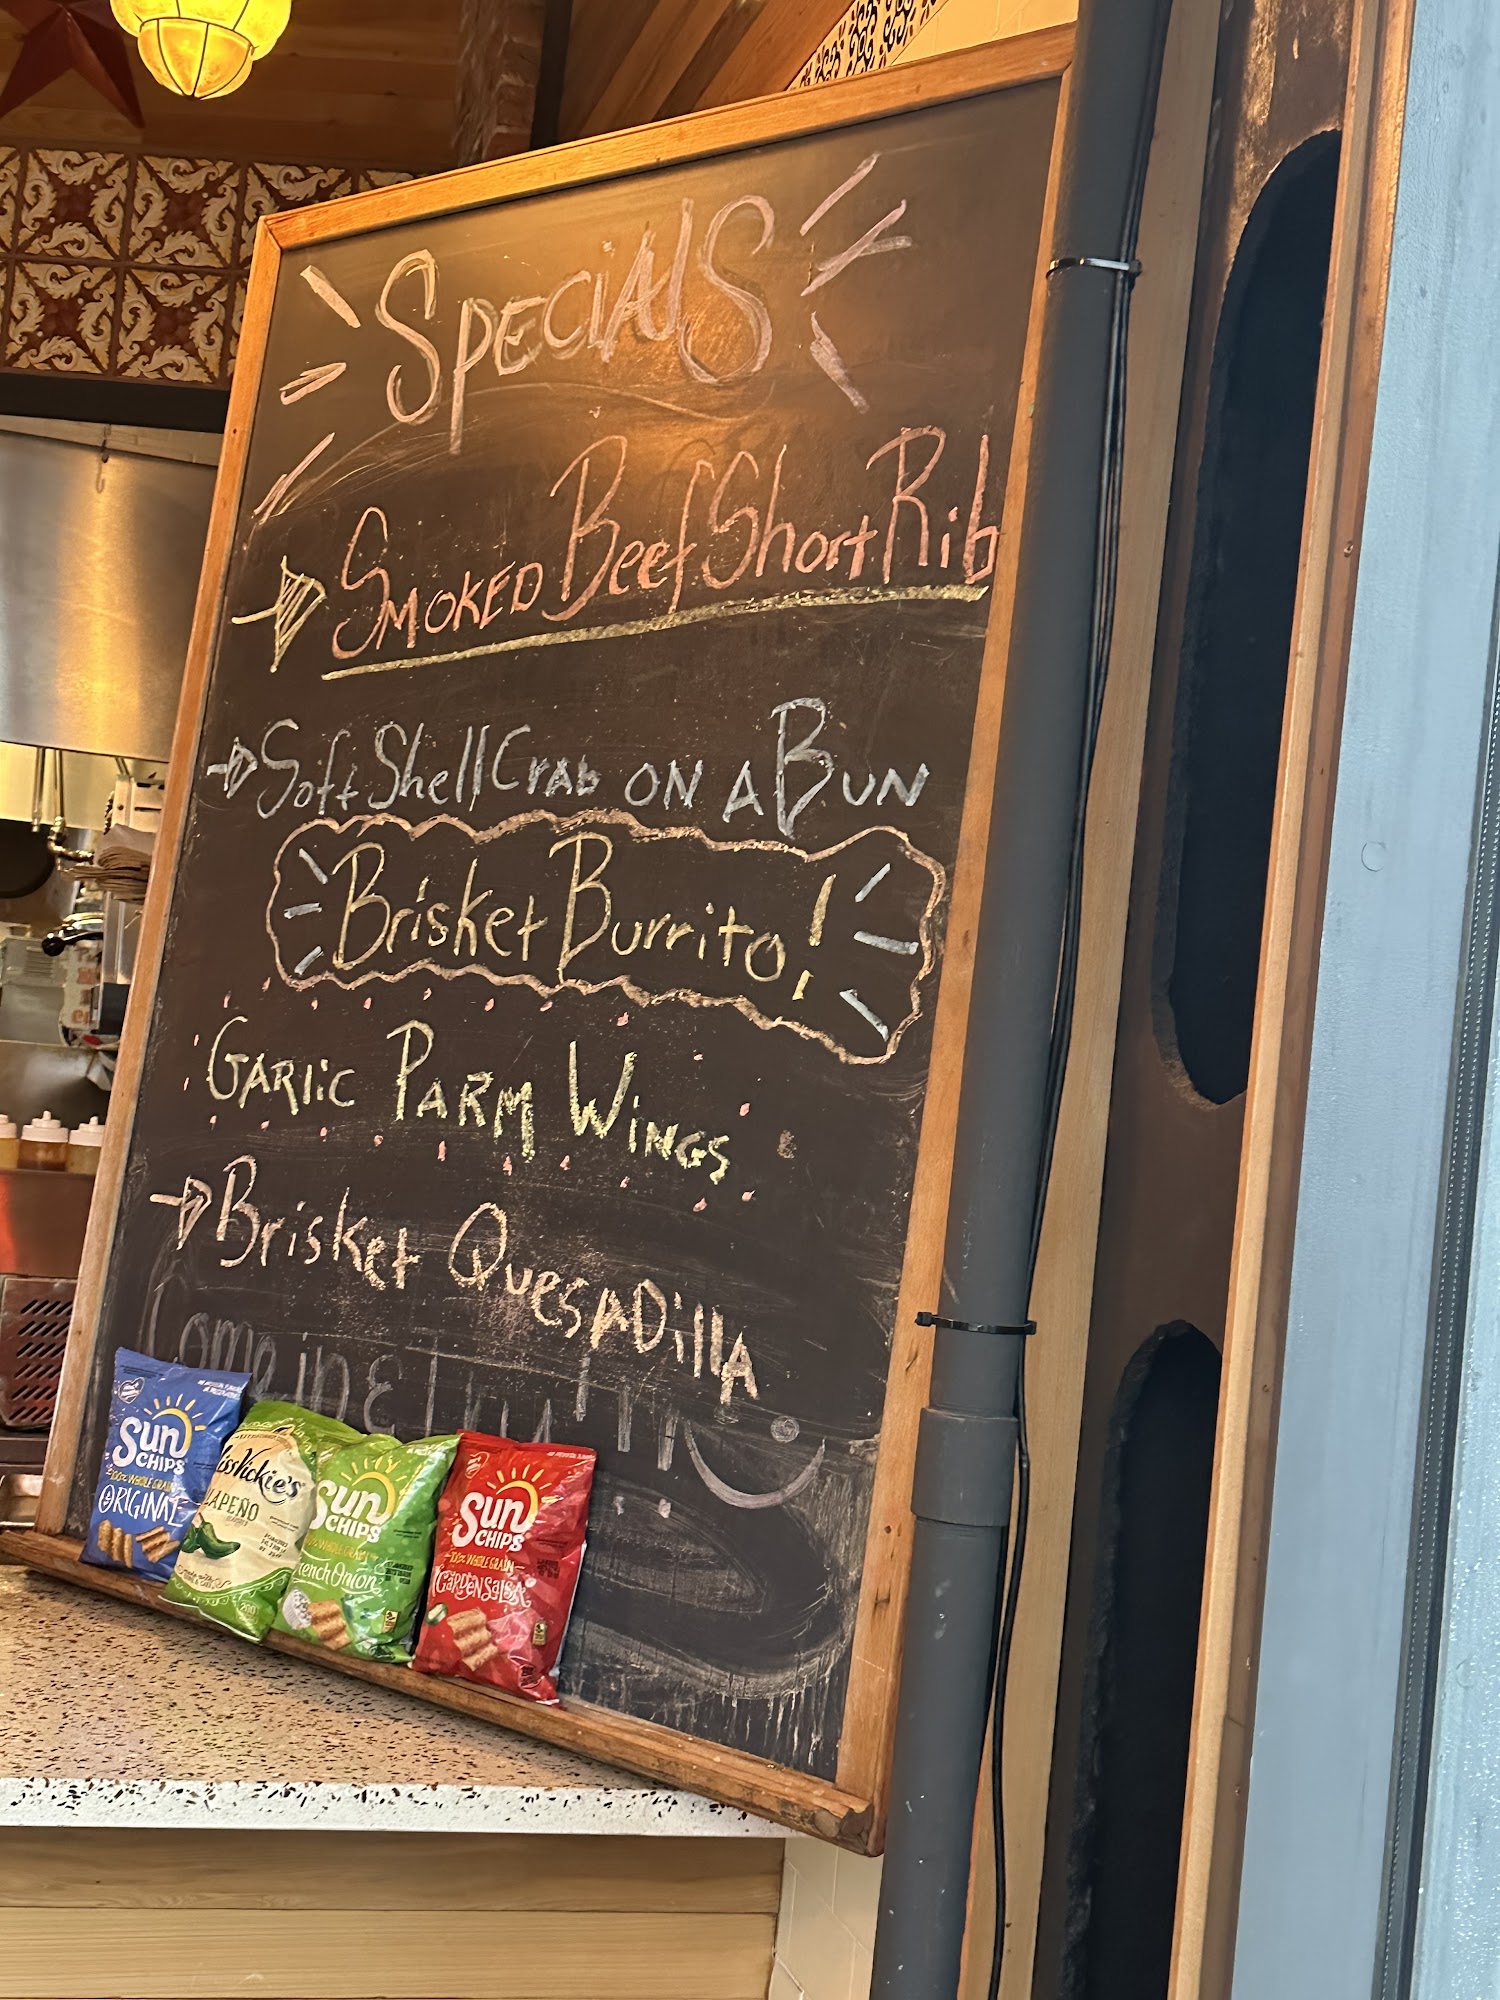 SPECIALS
SMOKED Beef Short Rib
Soft Shell Crab ON A BUN
Brisket Burrito!
GARlic PARM WINGS
Brisket QuesADillA
Come in
Sun
CHIPS
100% WHOLE GRAIN
ORIGINAL
issVickie's
APEÑO
Sun
CHIPS
WHOLE GRAIN
ench Onion
Sun
CHIPS
100% WHOLE GRAIN
GARDEN SALSA